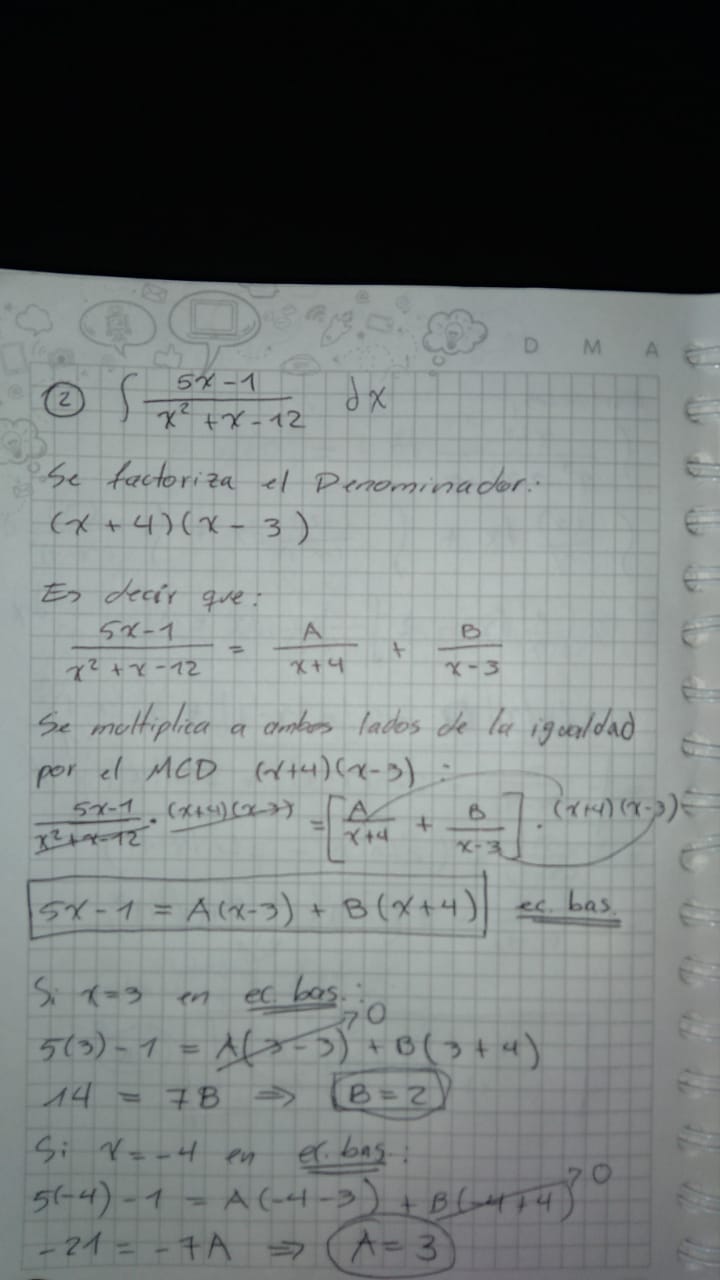 D M A
② ∫ 5x-1 / x² + x - 12 dx
Se factoriza el Denominador:
(x + 4)(x - 3)
Es decir que:
5x-1 / x² + x - 12 = A / x+4 + B / x-3
Se multiplica a ambos lados de la igualdad
por el MCD (x+4)(x-3) :
5x-1 / x²+x-12 · (x+4)(x-3) = [A / x+4 + B / x-3] · (x+4)(x-3)
5x - 1 = A(x-3) + B(x+4) ec. bas.
Si x=3 en ec. bas.:
5(3) - 1 = A(3-3) → 0 + B(3+4)
14 = 7B ⇒ B = 2
Si x = -4 en ec. bas.:
5(-4) - 1 = A(-4-3) + B(-4+4) → 0
-21 = -7A ⇒ A = 3